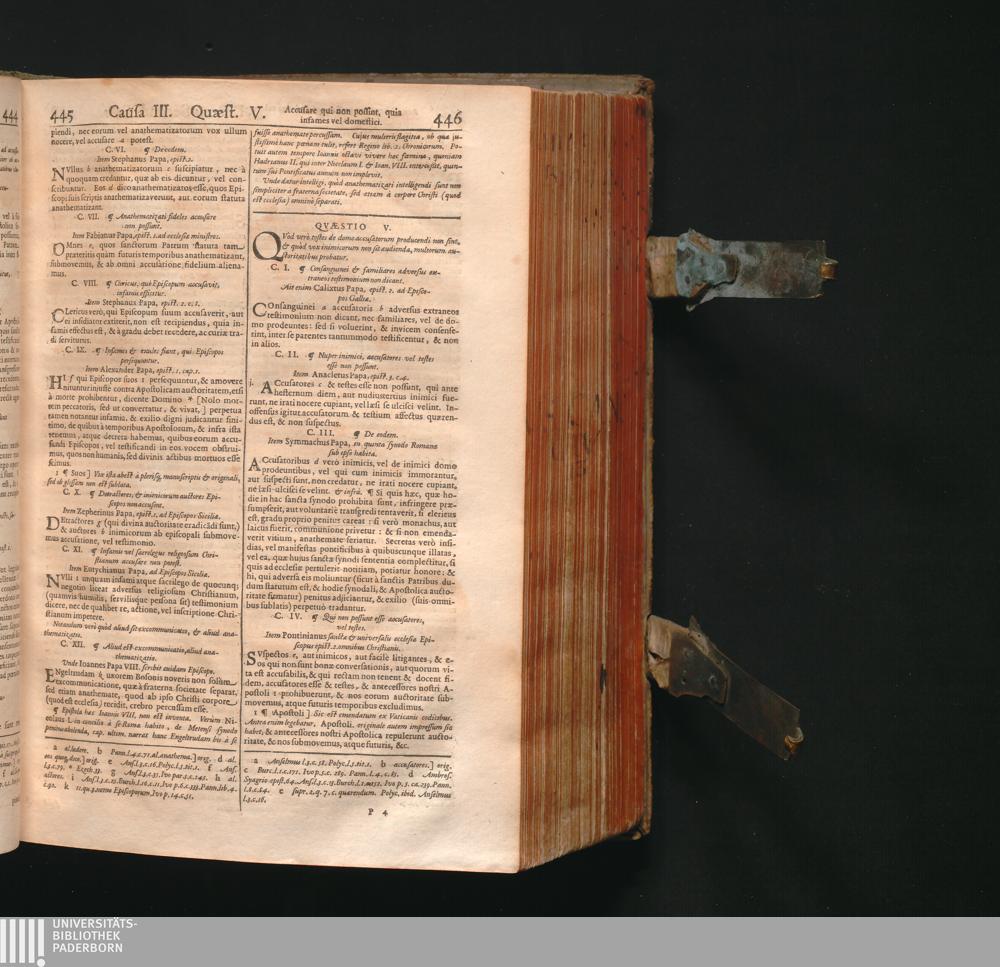 445 Causa III. Quæst. V. Accusare qui non possint, quia
infames vel domestici. 446
piendi, nec eorum vel anathematizatorum vox ullum
nocere, vel accusare a potest.
C. VI. ¶ De eodem.
Item Stephanus Papa, epist. 2.
NUllus b anathematizatorum c suscipiatur, nec à
quoquam credantur, quæ ab eis dicuntur, vel con-
scribuntur. Eos d dico anathematizatos esse, quos Epi-
scopi suis scriptis anathematizaverunt, aut eorum statuta
anathematizant.
C. VII. ¶ Anathematizati fideles accusare
non possunt.
Item Fabianus Papa, epist. 1. ad ecclesiæ ministros.
OMnes e, quos sanctorum Patrum statuta tam
præteritis quàm futuris temporibus anathematizant,
submovemus, & ab omni accusatione fidelium aliena-
mus.
C. VIII. ¶ Clericus, qui Episcopum accusavit,
infamis efficitur.
Item Stephanus Papa, epist. 2. c. 1.
CLericus verò, qui Episcopum suum accusaverit, aut
ei insidiator extiterit, non est recipiendus, quia in-
famis effectus est, & à gradu debet recedere, ac curiæ tra-
di serviturus.
C. IX. ¶ Infames & exules fiant, qui Episcopos
persequuntur.
Item Alexander Papa, epist. 1. cap. 1.
HI f qui Episcopos suos 1 persequuntur, & amovere
nituntur injustè contra Apostolicam auctoritatem, etsi
à morte prohibentur, dicente Domino * [Nolo mor-
tem peccatoris, sed ut convertatur, & vivat,] perpetua
tamen notantur infamia, & exilio digni judicantur fini-
timo, de quibus à temporibus Apostolorum, & infra ista
tenemus, atque decreta habemus, quibus eorum accu-
sandi Episcopos, vel testificandi in eos vocem obstrui-
mus, quos non humanis, sed divinis actibus mortuos esse
scimus.
1 ¶ Suos] Vox ista abest à plerisq; manuscriptis & originali,
sed ob glossam non est sublata.
C. X. ¶ Detractores, & inimicorum auctores Epi-
scopos non accusent.
Item Zepherinus Papa, epist. 1. ad Episcopos Siciliæ.
DEtractores g (qui divina auctoritate eradicãdi sunt,)
& auctores h inimicorum ab episcopali submove-
mus accusatione, vel testimonio.
C. XI. ¶ Infamis vel sacrilegus religiosum Chri-
stianum accusare non potest.
Item Eutychianus Papa, ad Episcopos Siciliæ.
NUlli i unquam infami atque sacrilego de quocunq;
negotio liceat adversus religiosum Christianum,
(quamvis humilis, servilisque persona sit) testimonium
dicere, nec de qualibet re, actione, vel inscriptione Chri-
stianum impetere.
Notandum verò quòd aliud sit excommunicatio, & aliud ana-
thematizatio.
C. XII. ¶ Aliud est excommunicatio, aliud ana-
thematizatio.
Unde Ioannes Papa VIII. scribit cuidam Episcopo.
ENgeltrudam k uxorem Bosonis noveris non solùm
excommunicatione, quæ à fraterna societate separat,
sed etiam anathemate, quod ab ipso Christi corpore
(quod est ecclesia) recidit, crebro percussam esse.
¶ Epistola hæc Ioannis VIII. non est inventa. Verùm Ni-
colaus I. in concilio à se Romæ habito, de Metensi synodo
penitus abolenda, cap. ultim. narrat hanc Engeltrudam bis à se
a al. ledem. b Pann. l. 4. c. 71. al. anathema.] orig. d al.
eos quoq; doce.] orig. e Ansl. 3. c. 16. Polyc. l. 5. tit. 1. f Ans.
l. 3. c. 79. * Ezech. 33. g Ansl. l. 3. c. 31. Ivo par. 5. c. 245. h al.
actores. i Ansl. l. 3. c. 22. Burch. l. 16. c. 11. Ivo p. 6. c. 333. Pann. lib. 4.
c. 92. k 11. qu. 3. nemo Episcoporum. Ivo p. 14. c. 51.
fuisse anathemate percussam. Cujus mulieris flagitia, ob quæ ju-
stissimè hanc pœnam tulit, refert Regino lib. 2. Chronicorum. Po-
tuit autem tempore Ioannis octavi vivere hæc fœmina, quoniam
Hadrianus II. qui inter Nicolaum I. & Ioan. VIII. intercessit, quin-
tum sui Pontificatus annum non implevit.
Unde datur intelligi, quòd anathematizati intelligendi sunt non
simpliciter à fraterna societate, sed etiam à corpore Christi (quod
est ecclesia) omninò separati.
QUÆSTIO V.
QUod verò testes de domo accusatorum producendi non sint,
& quòd vox inimicorum non sit audienda, multorum au-
ctoritatibus probatur.
C. I. ¶ Consanguinei & familiares adversus ex-
traneos testimonium non dicant.
Ait enim Calixtus Papa, epist. 2. ad Episco-
pos Galliæ.
COnsanguinei a accusatoris b adversus extraneos
testimonium non dicant, nec familiares, vel de do-
mo prodeuntes: sed si voluerint, & invicem consense-
rint, inter se parentes tantummodo testificentur, & non
in alios.
C. II. ¶ Nuper inimici, accusatores vel testes
esse non possunt.
Item Anacletus Papa, epist. 3. c. 4.
ACcusatores c & testes esse non possunt, qui ante
hesternum diem, aut nudiustertius inimici fue-
runt, ne irati nocere cupiant, vel læsi se ulcisci velint. In-
offensus igitur accusatorum & testium affectus quæren-
dus est, & non suspectus.
C. III. ¶ De eodem.
Item Symmachus Papa, in quinta synodo Romana
sub ipso habita.
ACcusatoribus d verò inimicis, vel de inimici domo
prodeuntibus, vel qui cum inimicis immorantur,
aut suspecti sunt, non credatur, ne irati nocere cupiant,
ne læsi ulcisci se velint. & infrà. ¶ Si quis hæc, quæ ho-
die in hac sancta synodo prohibita sunt, infringere præ-
sumpserit, aut voluntariè transgredi tentaverit, si clericus
est, gradu proprio penitus careat: si verò monachus, aut
laicus fuerit, communione privetur: & si non emenda-
verit vitium, anathemate feriatur. Secretas verò insi-
dias, vel manifestas pontificibus à quibuscunque illatas,
vel ea, quæ hujus sanctæ synodi sententia complectitur, si
quis ad ecclesiæ pertulerit notitiam, potiatur honore: &
hi, qui adversa eis moliuntur (sicut à sanctis Patribus du-
dum statutum est, & hodie synodali, & Apostolica aucto-
ritate firmatur) penitus adjiciantur, & exilio (suis omni-
bus sublatis) perpetuò tradantur.
C. IV. ¶ Qui non possunt esse accusatores,
vel testes.
Item Pontinianus sanctæ & universalis ecclesiæ Epi-
scopus epist. 2. omnibus Christianis.
SUspectos e, aut inimicos, aut facilè litigantes, & e-
os qui non sunt bonæ conversationis, aut quorum vi-
ta est accusabilis, & qui rectam non tenent & docent fi-
dem, accusatores esse & testes, & antecessores nostri A-
postoli 1 prohibuerunt, & nos eorum auctoritate sub-
movemus, atque futuris temporibus excludimus.
1 ¶ Apostoli] Sic est emendatum ex Vaticanis codicibus.
Antea enim legebatur, Apostoli. originale autem impressum sic
habet, & antecessores nostri Apostolica repulerunt aucto-
ritate, & nos submovemus, atque futuris, &c.
a Anselmus l. 3. c. 18. Polyc. l. 5. tit. 1. b accusatores.] orig.
c Burc. l. 1. c. 171. Ivo p. 5. c. 289. Pann. l. 4. c. 65. d Ambros.
Syagrio epist. 64. Ansl. 3. c. 13. Burch. l. 1. c. 151. Ivo p. 5. ca. 239. Pann.
l. 3. c. 64. e supr. 2. q. 7. c. quærendum. Polyc. ibid. Anselmus
l. 3. c. 18.
P 4
444
UNIVERSITÄTS-
BIBLIOTHEK
PADERBORN